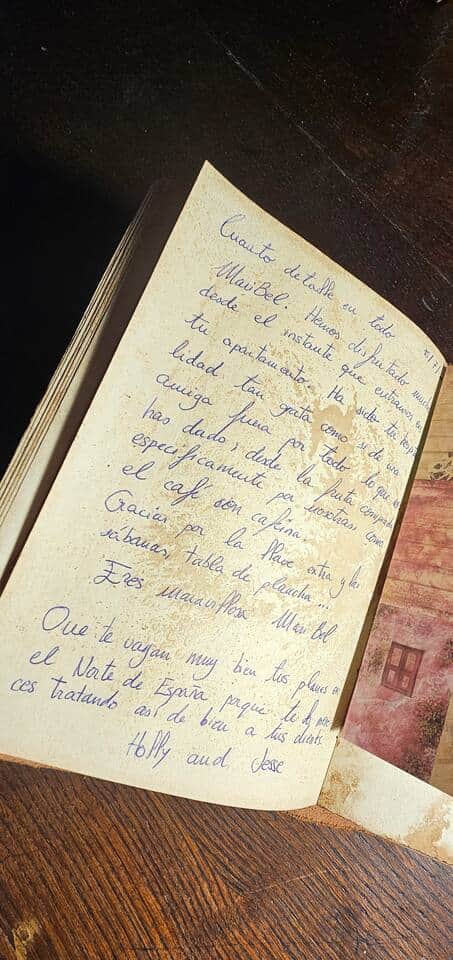 Cuanto detalle en todo
MariBel. Hemos disfrutado
desde el instante que entramos en
tu apartamento. Ha sido tu hospita
lidad tan grata como si de una
amiga fuera por todo lo que nos
has dado; desde la fruta comprada
especificamente por nosotras como
el café con cafeína.
Gracias por la llave extra y las
sábanas, tabla de plancha...
Eres maravillosa Mari Bel
Que te vayan muy bien tus planes en
el Norte de España, porque te lo mere
ces tratando así de bien a tus clients
Holly and Jesse